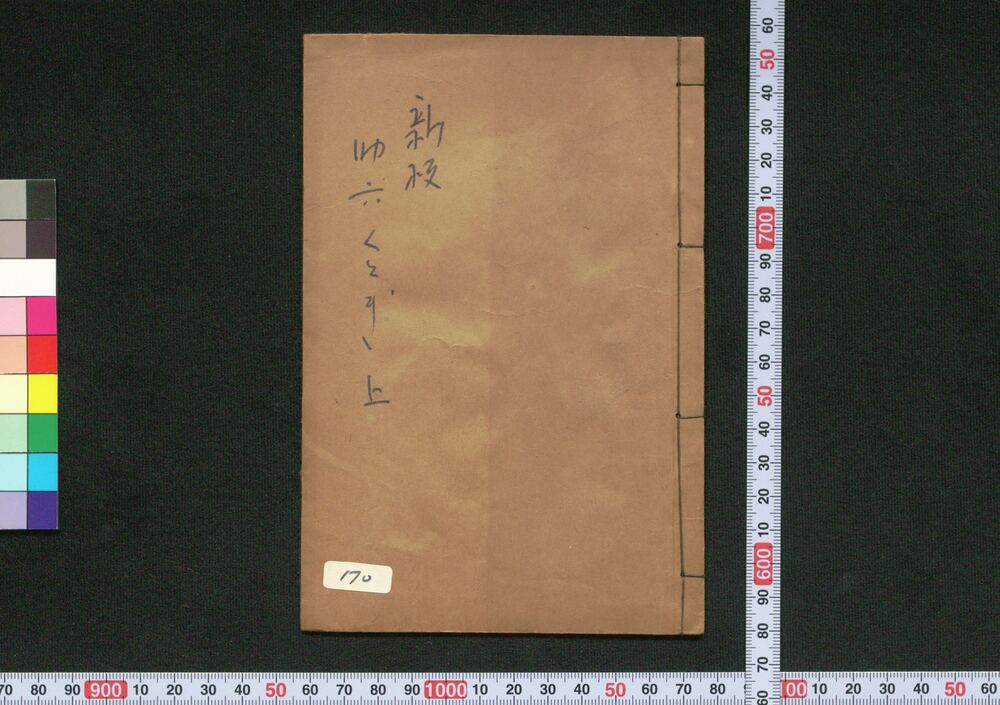 新板
助六く
上
170
60 50 40 30 20 10 700 90 80 70 60 50 40 30 20 10 600 90 80 70 60
70 80 90 900 10 20 30 40 50 60 70 80 90 1000 10 20 30 40 50 60 70 80 00 10 20 30 40 50 60